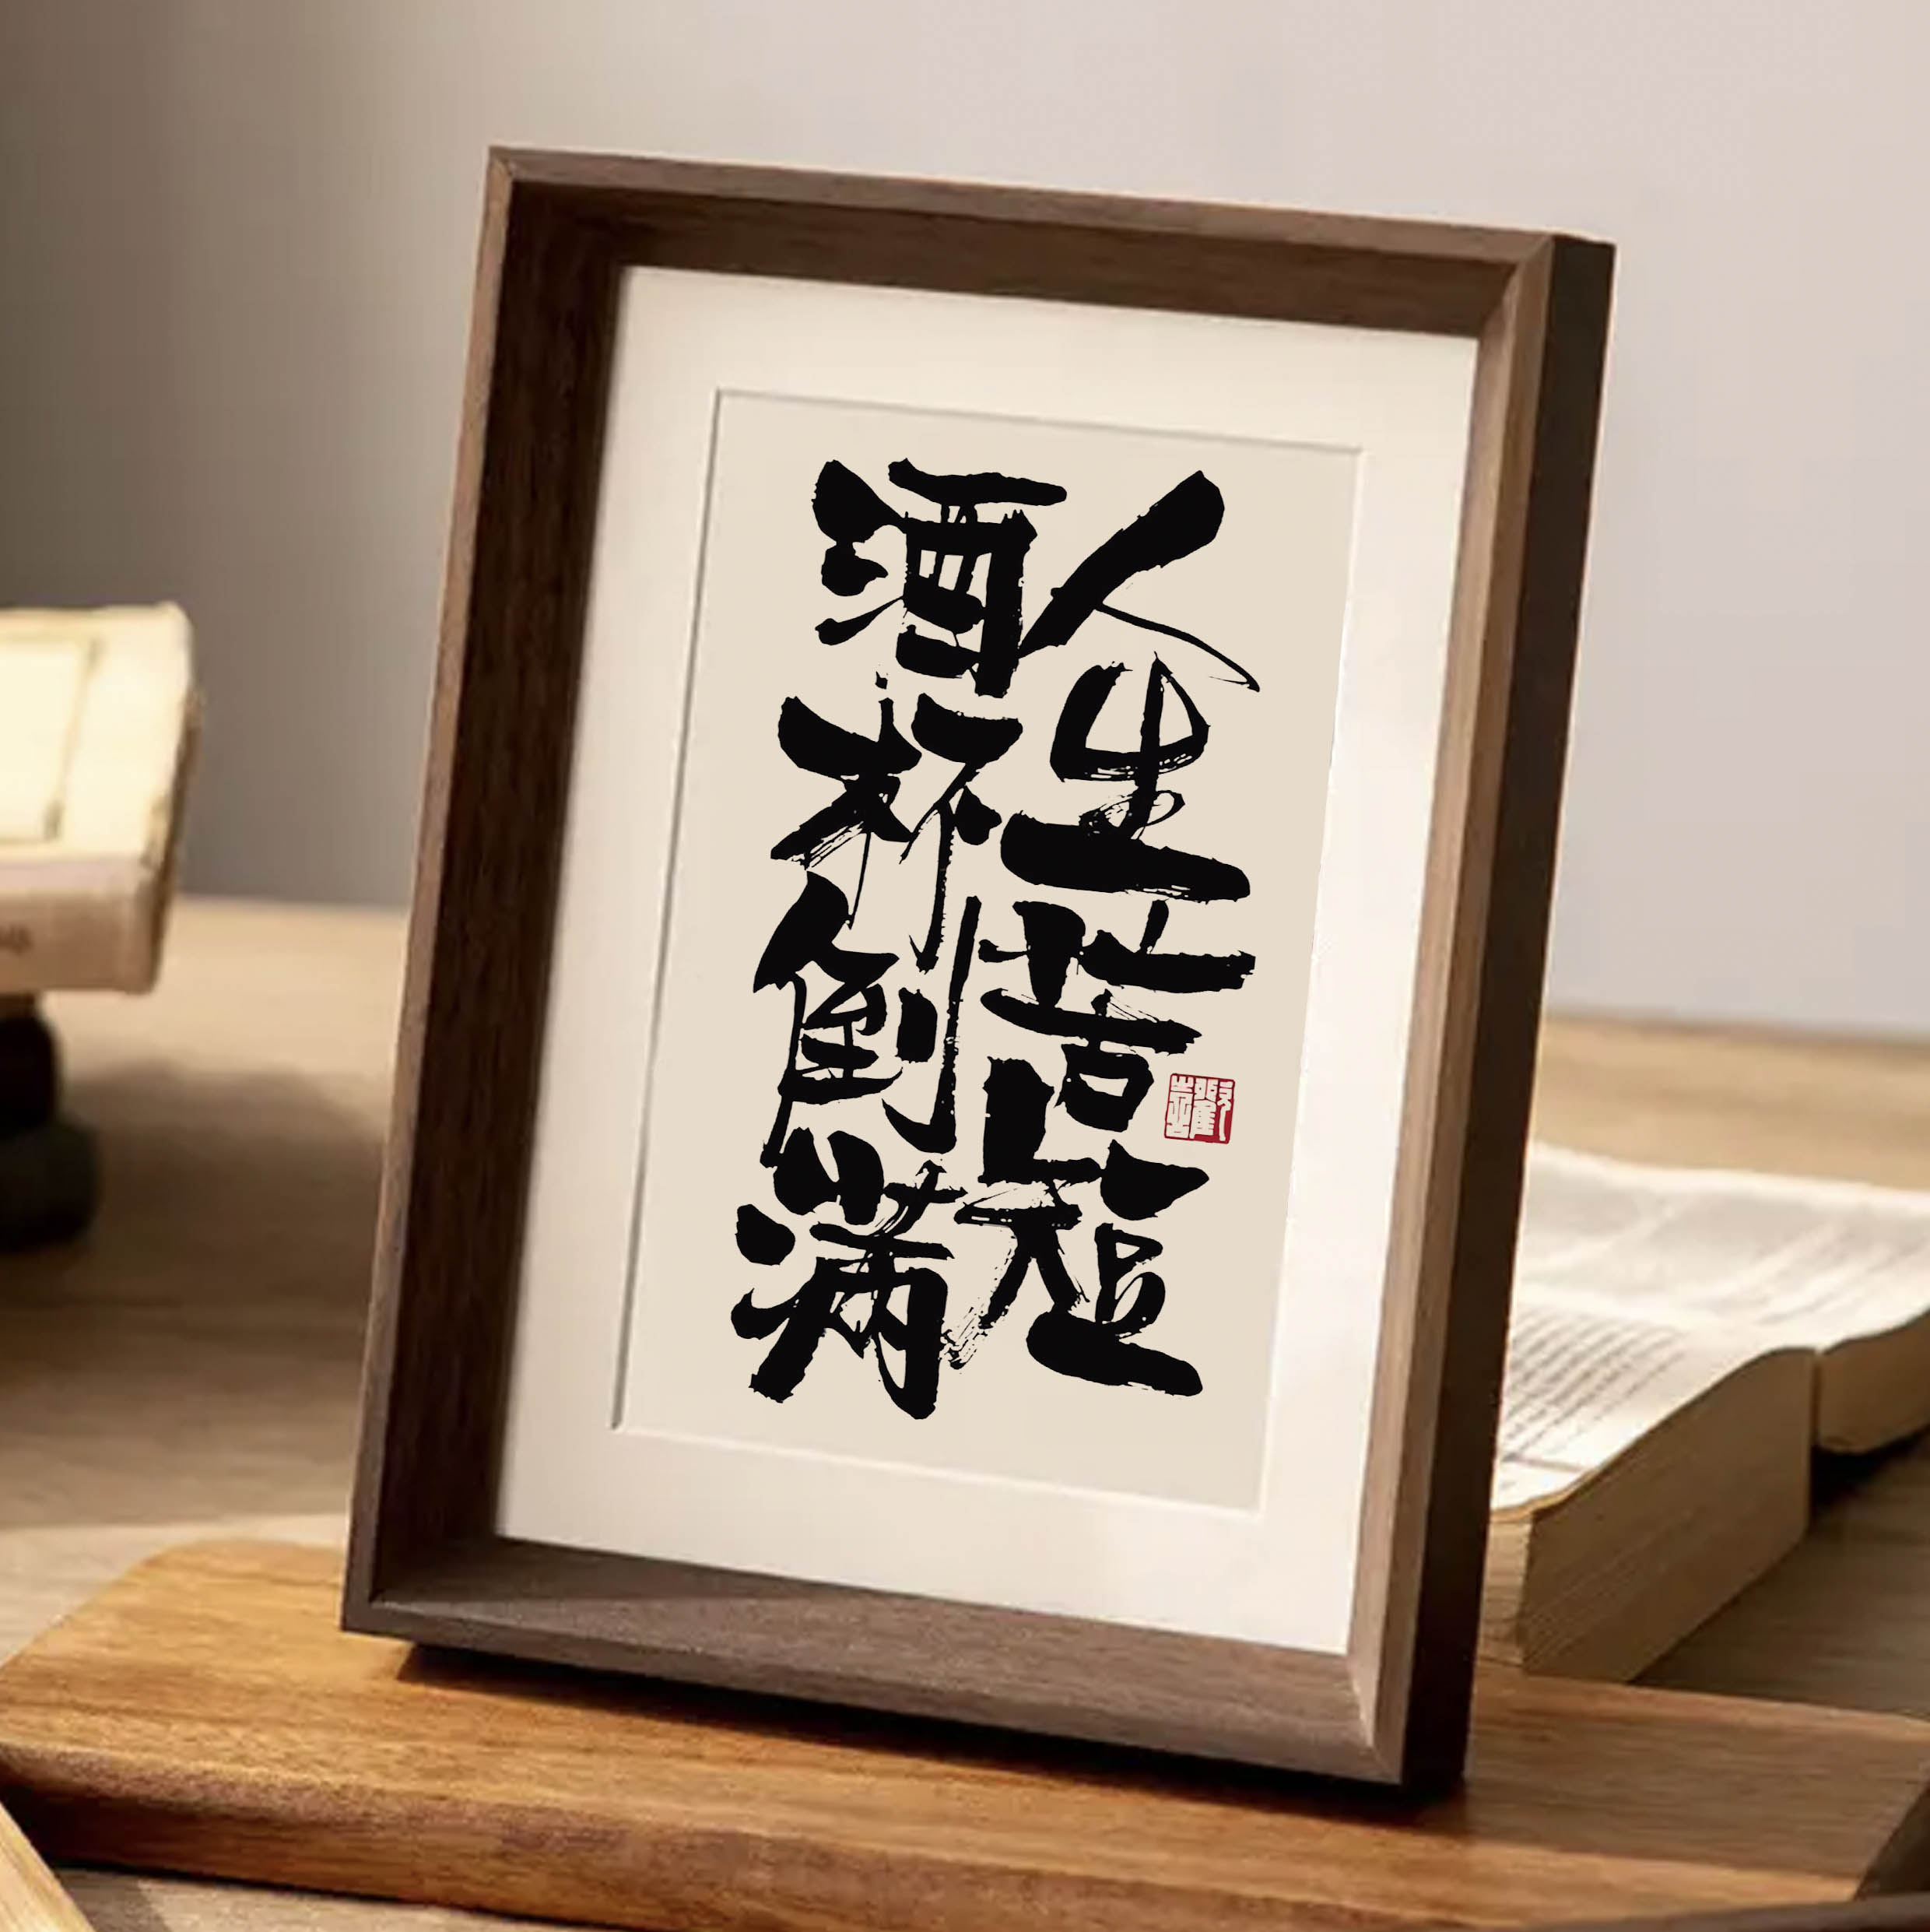 人生苦短
酒杯倒满